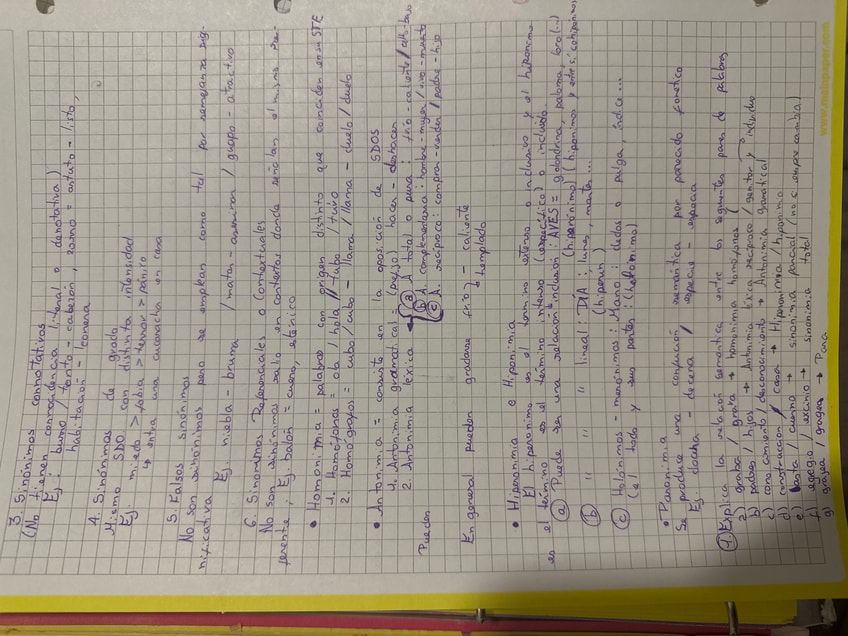 3. Sinónimos connotativos
(No tienen coincidencia literal o denotativa)
Ej: burro / tonto - cabezón, zorro = astuto - listo,
habitación - leonera
4. Sinónimos de grado
Mismo SDO con distinta intensidad
Ej miedo > fobia > terror > pánico
↳ entra una cucaracha en casa
5. Falsos sinónimos
No son sinónimos pero se emplean como tal por semejanza sig-
nificativa Ej. niebla - bruma / mata - / guapo - atractivo
6. Sinónimos Referenciales o Contextuales
No son sinónimos salvo en contextos donde señalan el mismo re-
ferente, Ej. balón = cuero, esférico
• Homonimia = palabras con origen distinto que coinciden en su STE
1. Homófonas = ola / hola // tubo / tuvo
2. Homógrafos = cubo / cubo - llama / llama - duelo / duelo
• Antonimia = consiste en la oposición de SDOS
1. Antonimia gramatical = (prefijo) hacer - deshacer
2. Antonimia léxica = ⓐ A total o pura: frío - caliente / alto-bajo
Pueden ⓑ A. complementaria: hombre - mujer / vivo - muerto
ⓒ A. recíproco: comprar - vender / padre - hijo
En general pueden gradarse frío - caliente
↳ templado
• Hiperonimia e Hiponimia
El hiperónimo es el término extenso o inclusivo y el hipónimo
es el término es el término intenso (específico) o incluido
ⓐ Puede ser una relación inclusión: AVES = golondrina, paloma, loro (...)
(hiperónimo) (hipónimos y entre sí cohipónimos)
ⓑ " " " lineal: DÍA: lunes, martes...
(hiperon)
ⓒ Holónimos - merónimos: Mano: dedos o pulgar, índice...
(el todo y sus partes:
• Paronimia
Se produce una confusión semántica por parecido fonético
Ej. docha - decena / especie - especia
① Explica la relación semántica entre los siguientes pares de palabras
a) graba / grava → homonimia homófonos (
b) padres / hijos → Antonimia léxica recíproco / genitor y individuo
c) conocimiento / desconocimiento → Antonimia gramatical
d) construcción / casa → Hiperonimia / hiponimia
e) → sinonimia parcial (no siempre cambia)
f) egregio / excinio → sinonimia total
g) grajea / gragea → Paro
www.mainpaper.com